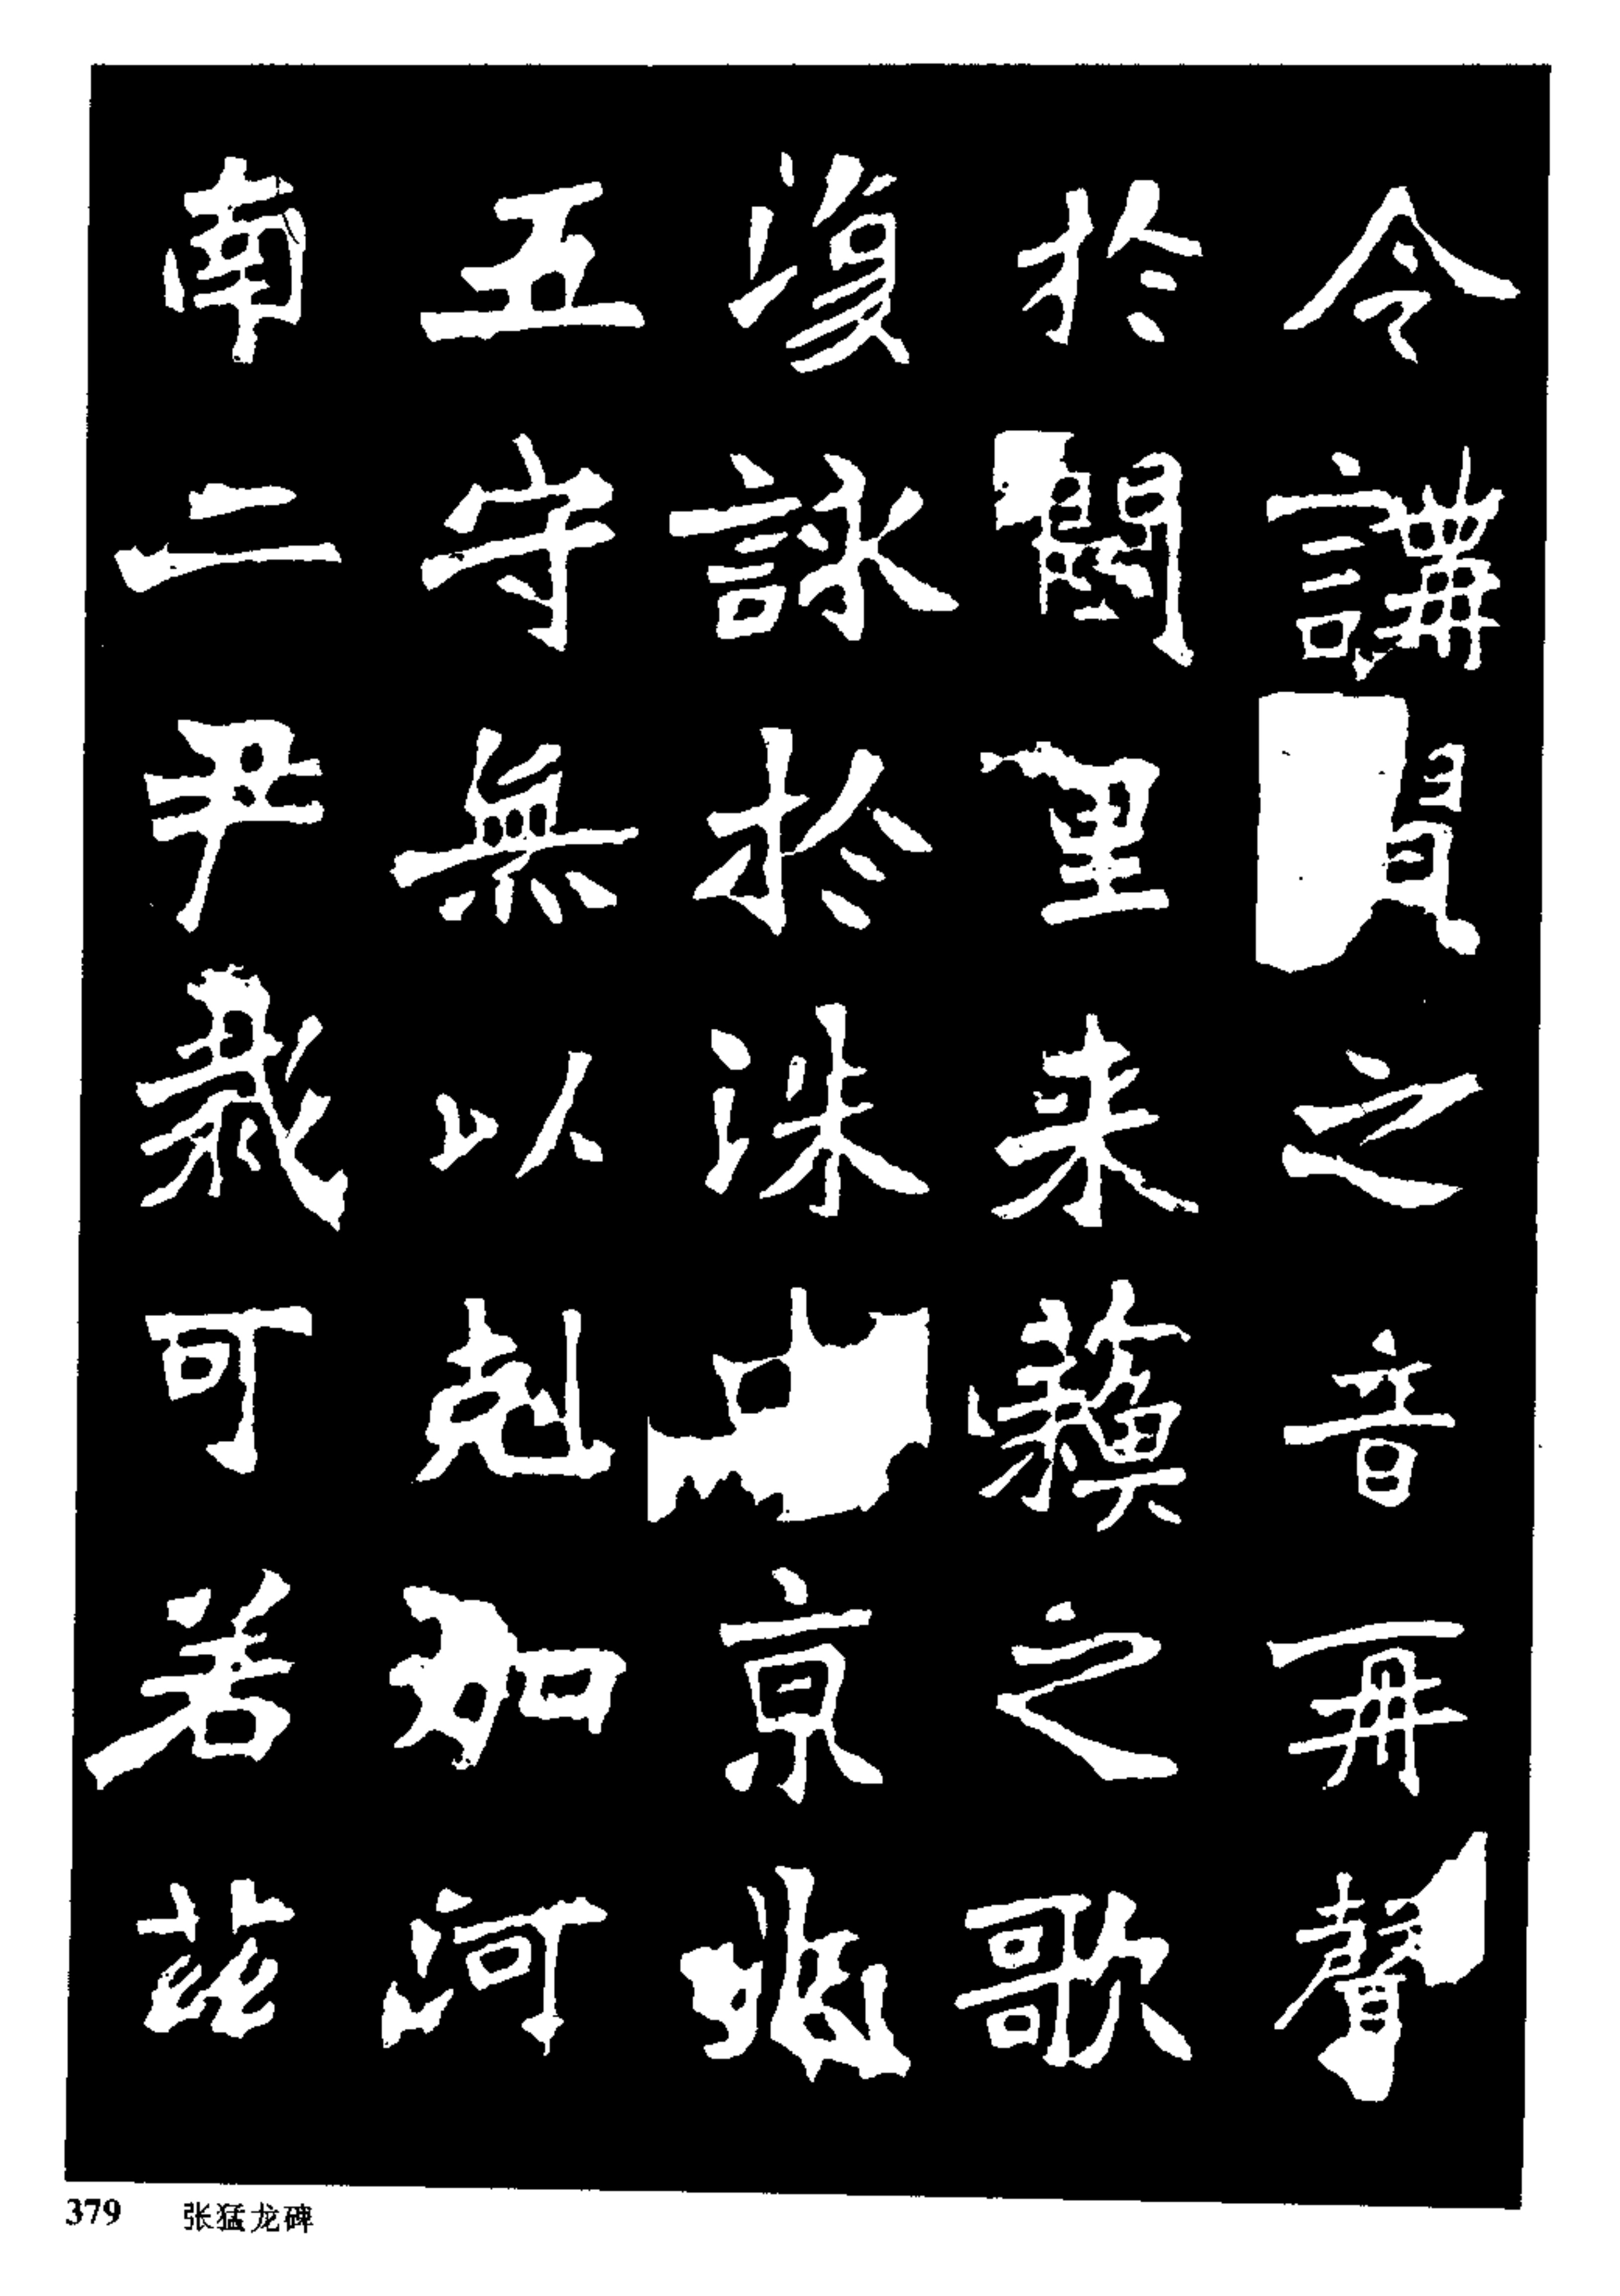 令講之音再聲
於闕里来蘓之歌
復詠於洙中京兆
五守無以尅加河
南二尹裁可若兹
379 张猛龙碑